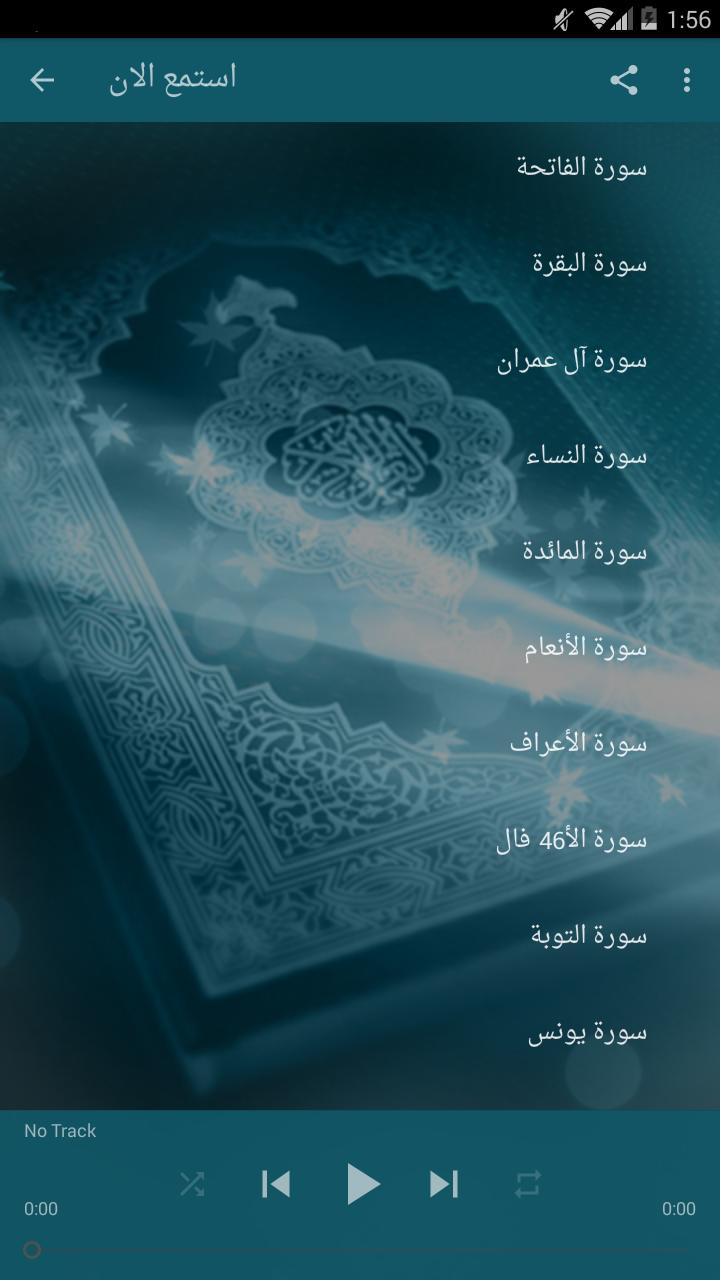 1:56
استمع الان
سورة الفاتحة
سورة البقرة
سورة آل عمران
سورة النساء
سورة المائدة
سورة الأنعام
سورة الأعراف
سورة الأ46 فال
سورة التوبة
سورة يونس
No Track
0:00
0:00